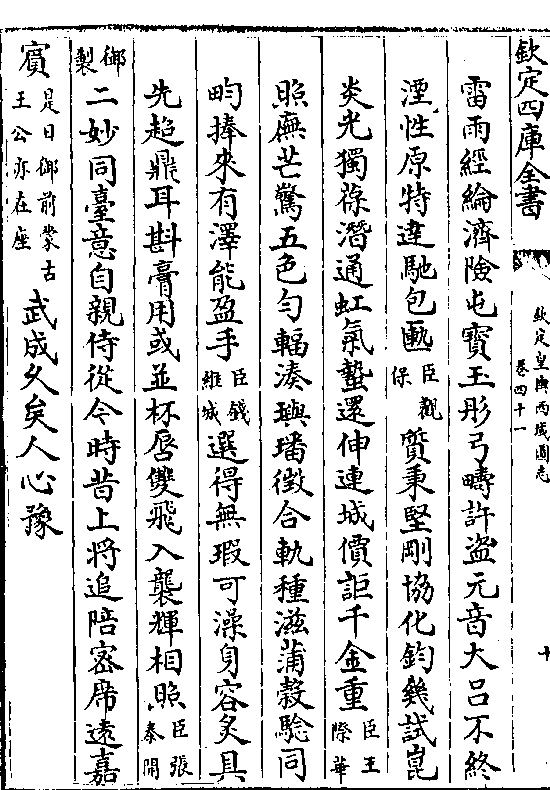 欽定四庫全書
欽定皇輿西域圖志
卷四十一
十
雷雨經綸濟險屯寶玉彤弓疇許盜元音大呂不終
湮性原特達馳包匭臣觀保質秉堅剛協化鈞幾試崑
炎光獨葆潛通虹氣蟄還伸連城價詎千金重臣王際華
照廡芒驚五色勻輻湊璵璠徵合軌種滋蒲榖驗同
畇捧來有澤能盈手臣錢維城選得無瑕可澡身容炙具
先超鼎耳斟膏用或並杯唇雙飛入襲輝相照臣張泰開
御製二妙同臺意自親侍從今時昔上將追陪密席遠嘉
賓是日御前蒙古王公亦在座武成久矣人心豫